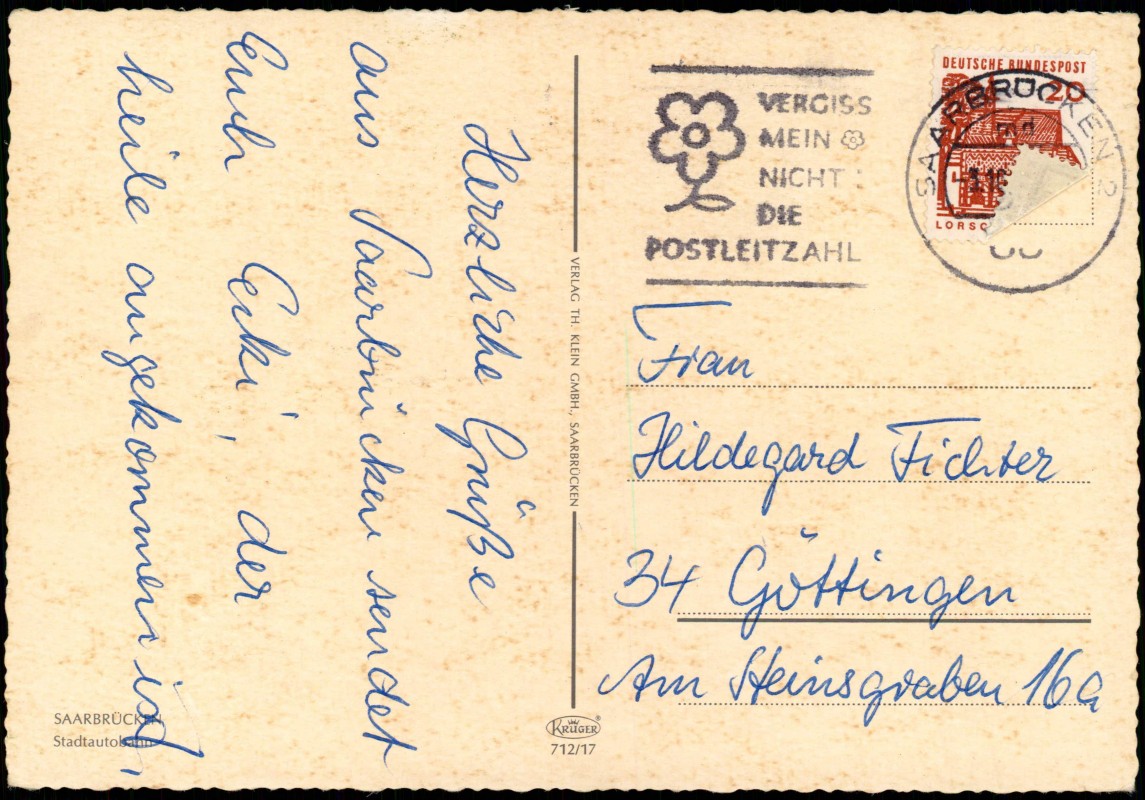 Herzliche Grüße
aus Saarbrücken sendet
Euch Ecki, der
heile angekommen ist.
SAARBRÜCKEN
Stadtautobahn
VERLAG TH. KLEIN GMBH., SAARBRÜCKEN
KRÜGER
712/17
VERGISS
MEIN
NICHT
DIE
POSTLEITZAHL
DEUTSCHE BUNDESPOST
20
LORSC
SAARBRÜCKEN 2
Frau
Hildegard Fichter
34 Göttingen
Am Steinsgraben 16a